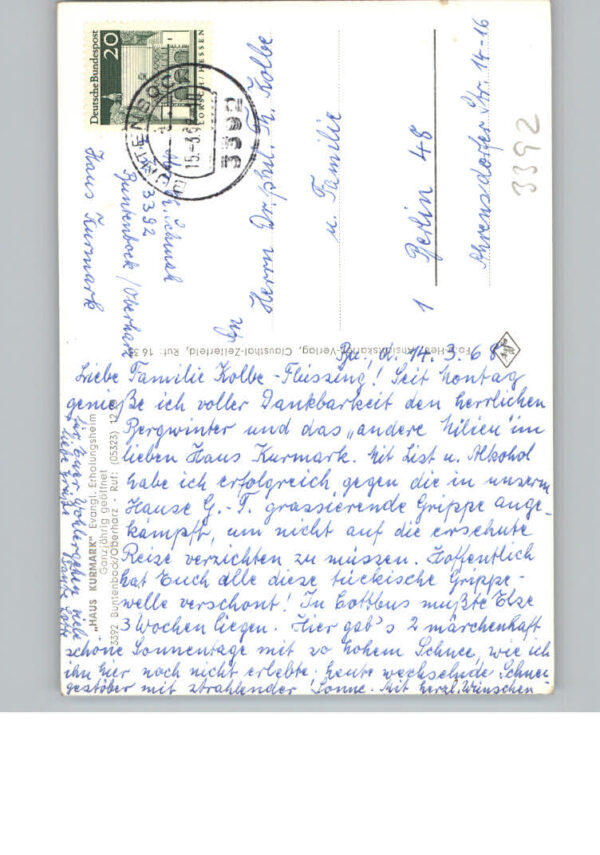 Deutsche Bundespost
20
LORSCH/HESSEN
BUNTENBOCK
15.-3.68
3392
3392
Buntenbock/Oberharz
Haus Kurmark
An
Herrn Dr. phil. Th. Kolbe
u. Familie
1 Berlin 48
Ahrensdorfer Str. 14-16
3392
Foto-Hess, Ansichtskarten-Verlag, Clausthal-Zellerfeld, Ruf: 16 3
"HAUS KURMARK" Evangl. Erholungsheim
Ganzjährig geöffnet
3392 Buntenbock/Oberharz - Ruf: (05323) 12
Bu., d. 14.3.68
Liebe Familie Kolbe-Flüssing! Seit Montag
genieße ich voller Dankbarkeit den herrlichen
Bergwinter und das "andere Milieu" im
lieben Haus Kurmark. Mit List u. Alkohol
habe ich erfolgreich gegen die in unserm
Hause G.-T. grassierende Grippe ange-
kämpft, um nicht auf die ersehnte
Reise verzichten zu müssen. Hoffentlich
hat Euch alle diese tückische Grippe-
welle verschont! In Cottbus mußte Else
3 Wochen liegen. Hier gab's 2 märchenhaft
schöne Sonnentage mit so hohem Schnee, wie ich
ihn hier noch nicht erlebte. heute wechselnde Schnee-
gestöber mit strahlender Sonne. Mit herzl. Wünschen
für Euer Wohlergehen und
liebe Grüße